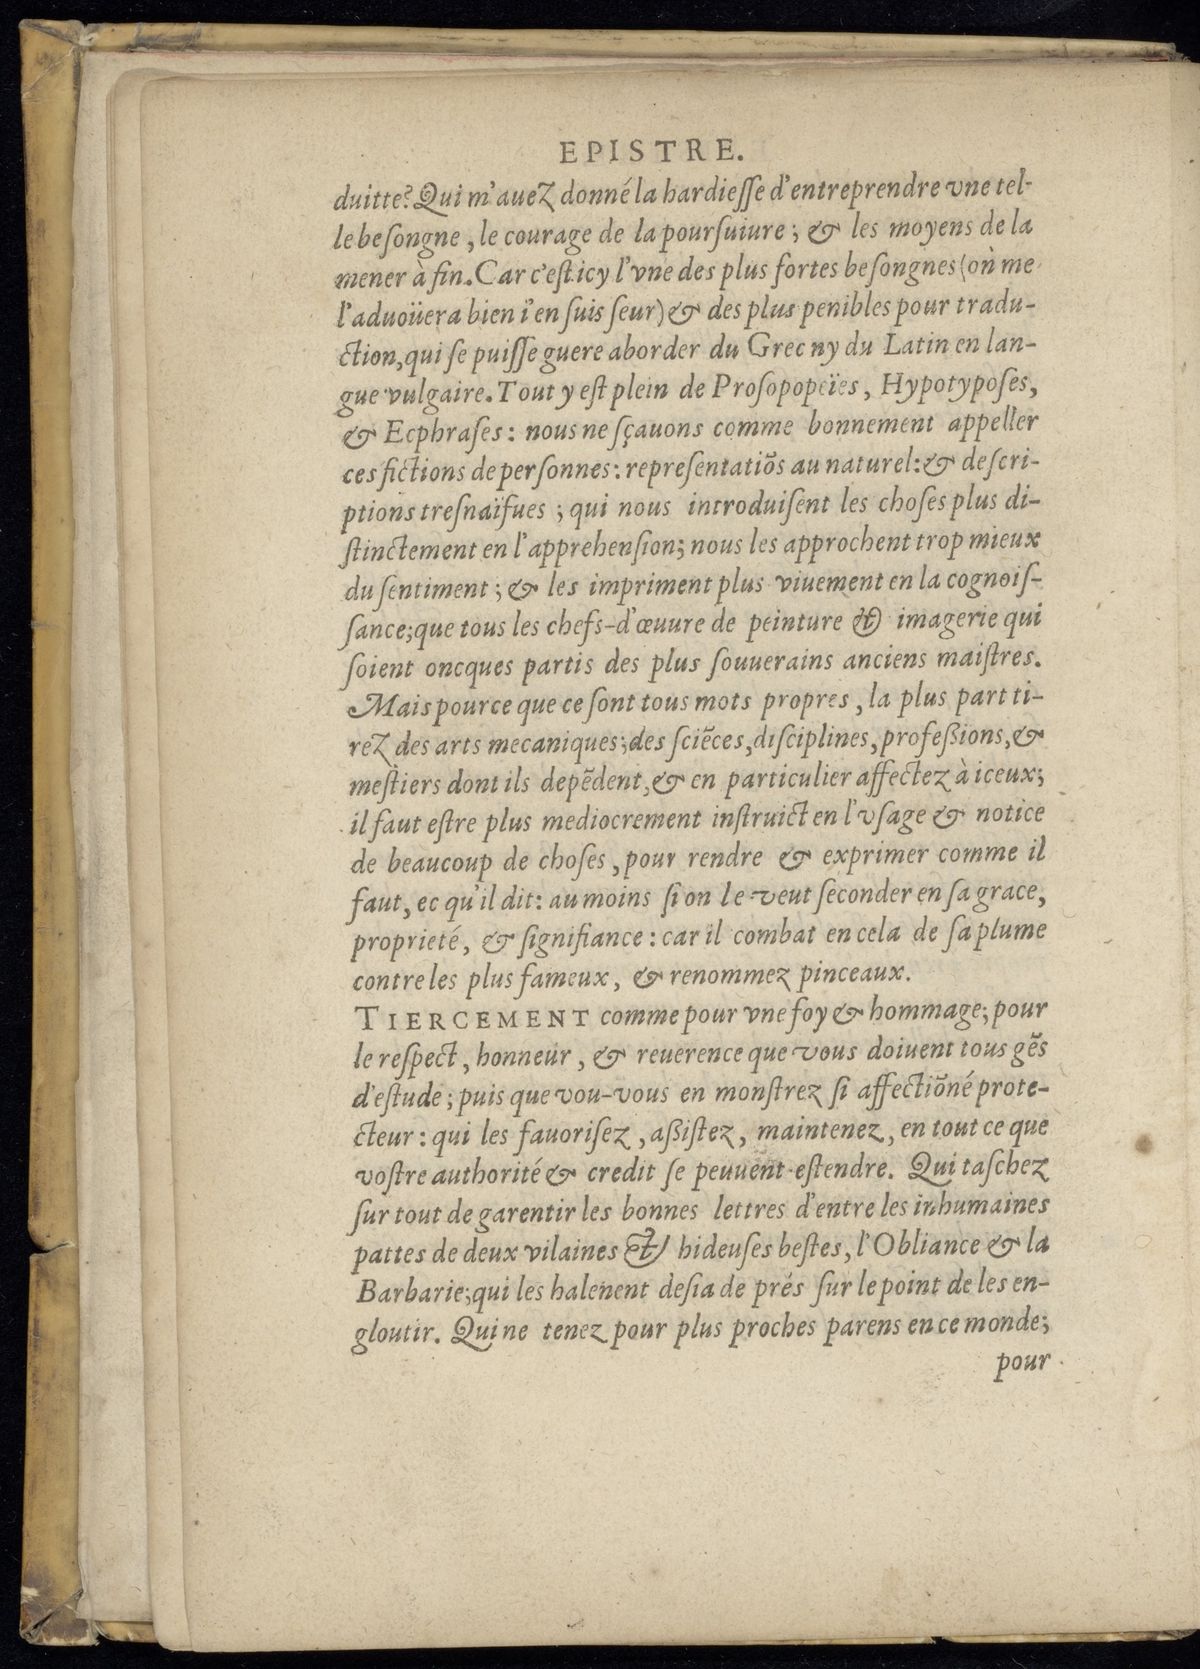 EPISTRE.
duitte? Qui m'auez donné la hardieſſe d'entreprendre vne tel-
le beſongne, le courage de la pourſuiure; & les moyens de la
mener à fin. Car c'eſt icy l'vne des plus fortes beſongnes (on me
l'aduoüera bien i'en ſuis ſeur) & des plus penibles pour tradu-
ction, qui ſe puiſſe guere aborder du Grec ny du Latin en lan-
gue vulgaire. Tout y eſt plein de Proſopopeïes, Hypotypoſes,
& Ecphraſes: nous ne ſçauons comme bonnement appeller
ces fictions de perſonnes: repreſentatiõs au naturel: & deſcri-
ptions treſnaïfues; qui nous introduiſent les choſes plus di-
ſtinctement en l'apprehenſion; nous les approchent trop mieux
du ſentiment; & les impriment plus viuement en la cognoiſ-
ſance; que tous les chefs-d'œuure de peinture & imagerie qui
ſoient oncques partis des plus ſouuerains anciens maiſtres.
Mais pource que ce ſont tous mots propres, la plus part ti-
rez des arts mecaniques; des ſciẽces, diſciplines, profeßions, &
meſtiers dont ils depẽdent, & en particulier affectez à iceux;
il faut eſtre plus mediocrement inſtruict en l'vſage & notice
de beaucoup de choſes, pour rendre & exprimer comme il
faut, ec qu'il dit: au moins ſi on le veut ſeconder en ſa grace,
proprieté, & ſignifiance: car il combat en cela de ſa plume
contre les plus fameux, & renommez pinceaux.
TIERCEMENT comme pour vne foy & hommage; pour
le reſpect, honneur, & reuerence que vous doiuent tous gẽs
d'eſtude; puis que vou-vous en monſtrez ſi affectiõné prote-
cteur: qui les fauoriſez, aßiſtez, maintenez, en tout ce que
voſtre authorité & credit ſe peuuent eſtendre. Qui taſchez
ſur tout de garentir les bonnes lettres d'entre les inhumaines
pattes de deux vilaines & hideuſes beſtes, l'Obliance & la
Barbarie; qui les halenent deſia de prés ſur le point de les en-
gloutir. Qui ne tenez pour plus proches parens en ce monde;
pour